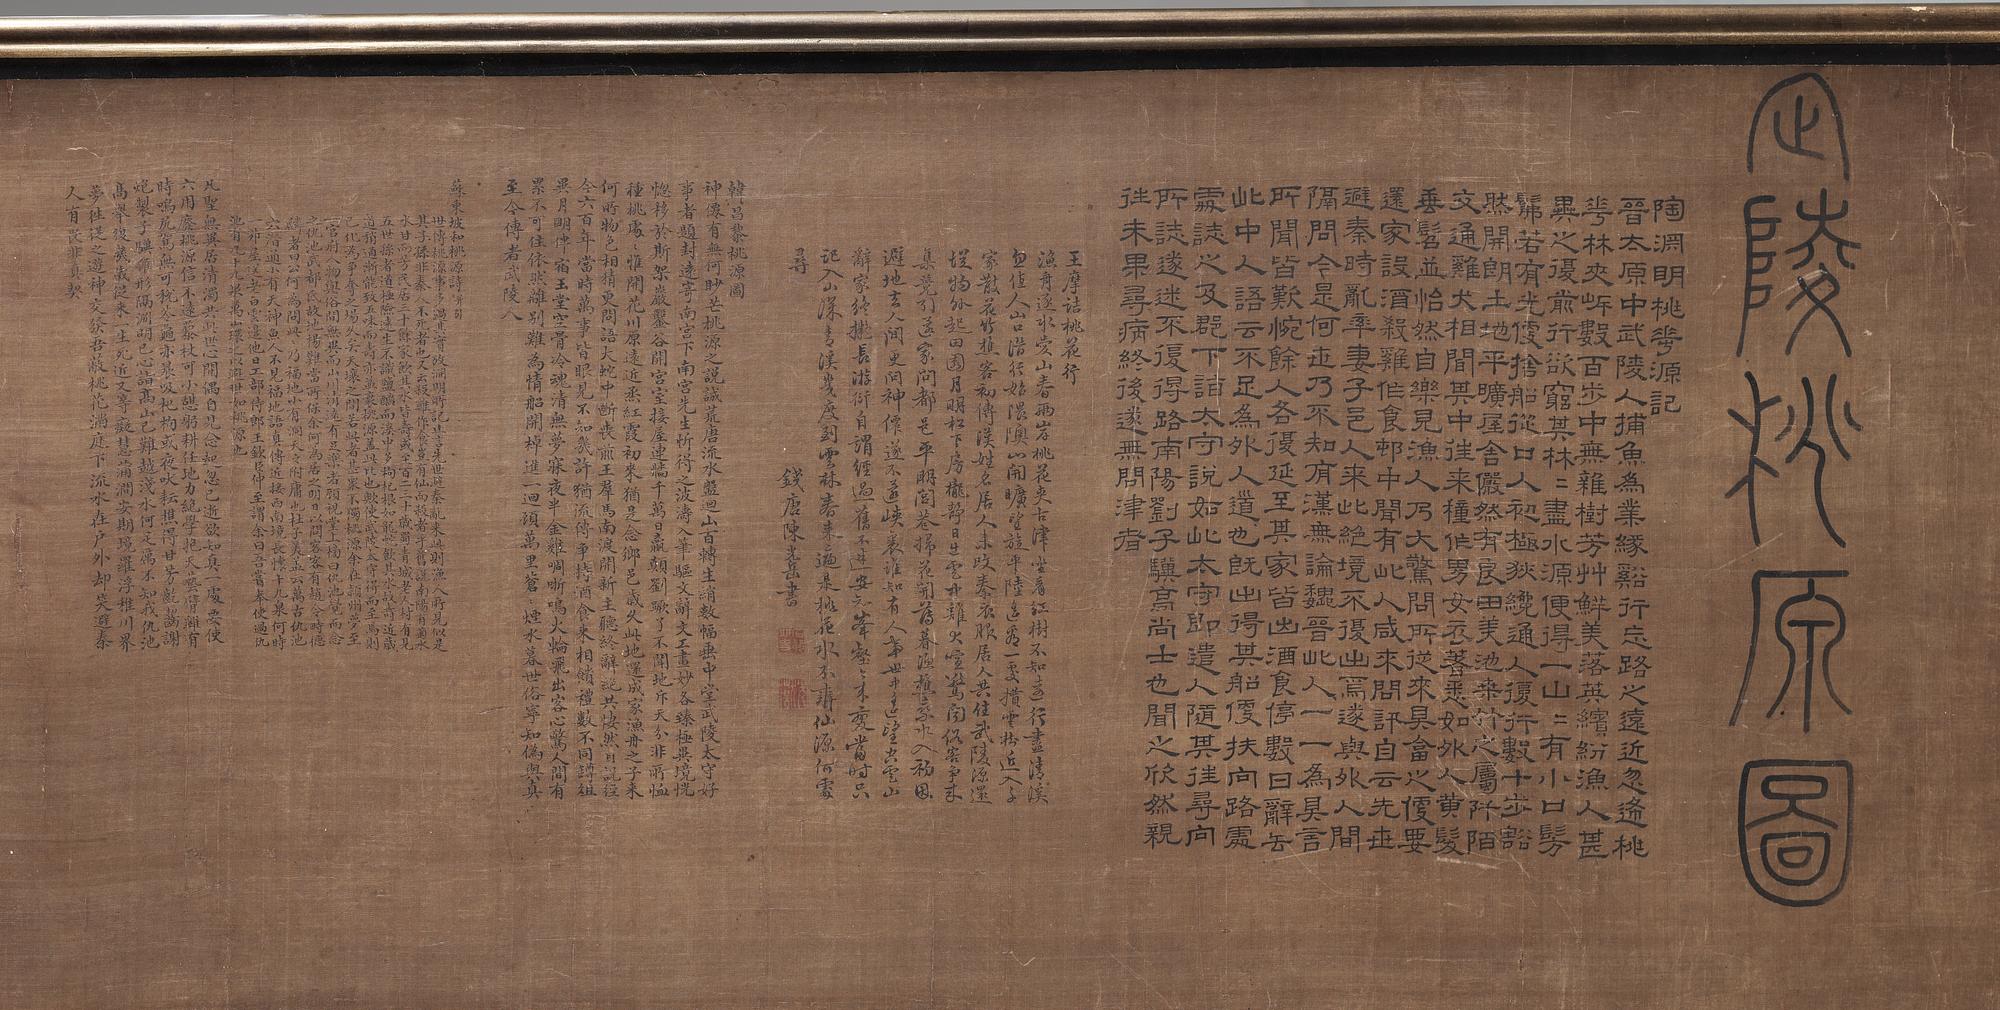 武陵桃原圖
陶淵明桃華源記
晉太原中武陵人捕魚為業緣谿行忘路之遠近忽逢桃
華林夾岍數百步中無雜樹芳艸鮮美落英繽紛漁人甚
異之復前行欲窮其林〻盡水源便得一山〻有小口髣
髴若有光便捨船從口人初極狹纔通人復行數十步豁
然開朗土地平曠屋舍儼然有良田美池桑竹之屬阡陌
交通雞犬相聞其中往來種作男女衣著悉如外人黃髮
垂髫並怡然自樂見漁人乃大驚問所從來具畣之便要
還家設酒殺雞作食邨中聞有此人咸來問訊自云先世
避秦時亂率妻子邑人來此絕境不復出焉遂與外人間
隔問今是何世乃不知有漢無論魏晉此人一一為具言
所聞皆歎惋餘人各復延至其家皆出酒食停數日辭去
此中人語云不足為外人道也旣出得其船便扶向路處
處誌之及郡下詣太守說如此太守即遣人隨其往尋向
所誌遂迷不復得路南陽劉子驥高尚士也聞之欣然親
往未果尋病終後遂無問津者
王摩詰桃花行
漁舟逐水愛山春兩岸桃花夾古津坐看紅樹不知遠行盡清溪
忽值人山口潛行始隈隩山開曠望旋平陸遙看一處攢雲樹近入千
家散花竹樵客初傳漢姓名居人未改秦衣服居人共住武陵源還
從物外起田園月明松下房櫳靜日出雲中雞犬喧驚聞俗客爭來
集競引還家問都邑平明閭巷掃花開薄暮漁樵乘水入初因
避地去人間更問神僊遂不還峽裏誰知有人事世中遙望空雲山
辭家終擬長游衍自謂經過舊不迷安知峰壑今來變當時只
記入山深青溪幾度到雲林春來遍是桃花水不辨仙源何處
尋
錢唐陳書
韓昌黎桃源圖
神僊有無何眇芒桃源之說誠荒唐流水盤迴山百轉生綃數幅垂中堂武陵太守好
事者題封遠寄南宮下南宮先生忻得之波濤入筆驅文辭文工畫妙各臻極異境恍
惚移於斯架巖鑿谷開宮室接屋連牆千萬日嬴顛劉蹶了不聞地坼天分非所恤
種桃處〻惟開花川原遠近烝紅霞初來猶自念鄉邑歲久此地還成家漁舟之子來
何所物色相猜更問語大蛇中斷喪前王羣馬南渡開新主聽終辭絕共悽然自說經
今六百年當時萬事皆眼見不知幾許猶流傳爭持酒食來相饋禮數不同罇俎
異月明伴宿玉堂空骨冷魂清無夢寐夜半金雞啁哳鳴火輪飛出客心驚人間有
累不可住依然離別難為情船開棹進一迴顧萬里蒼〻煙水暮世俗寧知偽與真
至今傳者武陵人
蘇東坡和桃源詩并引
世傳桃源事多過其實攷淵明所記止言先世避秦亂來此則漁人所見似是
其子孫非秦人不死者也又云殺雞作食豈有仙而殺者乎舊說南陽有菊水
水甘而芳民居三十餘家飲其水皆壽或至百二三十歲蜀青城老人村有見
五世孫者道極險遠生不識鹽醯而溪中多枸杞根如龍蛇飲其水故壽近歲
道稍通漸能致五味而壽亦益衰桃源蓋此比也歟使武陵太守得而至焉則
已化為爭奪之場久矣天壤之間若此者甚衆不獨桃源余在潁州夢至
一官府人物與俗間無異而山川清遠有足樂者顧視堂上榜曰仇池覺而念
之仇池武都氐故地楊難當所保余何為居之明日以問客客有趙令畤德
麟者曰公何為問此此乃福地小有洞天之附庸也杜子美蓋云萬古仇池
穴潛通小有天神魚人不見福地語真傳近接西南境長懷十九泉何時
一茅屋送老白雲邊他日工部侍郎王欽臣仲至謂余曰吾嘗奉使過仇
池有九十九泉萬山環之可避世如桃源也
凡聖無異居清濁共此世心閒偶自見念起忽已逝欲知真一處要使
六用廢桃源信不遠藜杖可小憩躬耕任地力絕學抱天藝臂雞有
時鳴尻駕無可稅苓龜亦晨吸杞狗或夜吠耘樵得甘芳齕齧謝
炮製子驥雖形隔淵明已心詣高山已難越淺水何足厲不知我仇池
高舉復幾歲從來一生死近又等癡慧蒲澗安期境羅浮稚川界
夢往從之遊神交發吾蔽桃花滿庭下流水在戶外却笑避秦
人有畏非真契